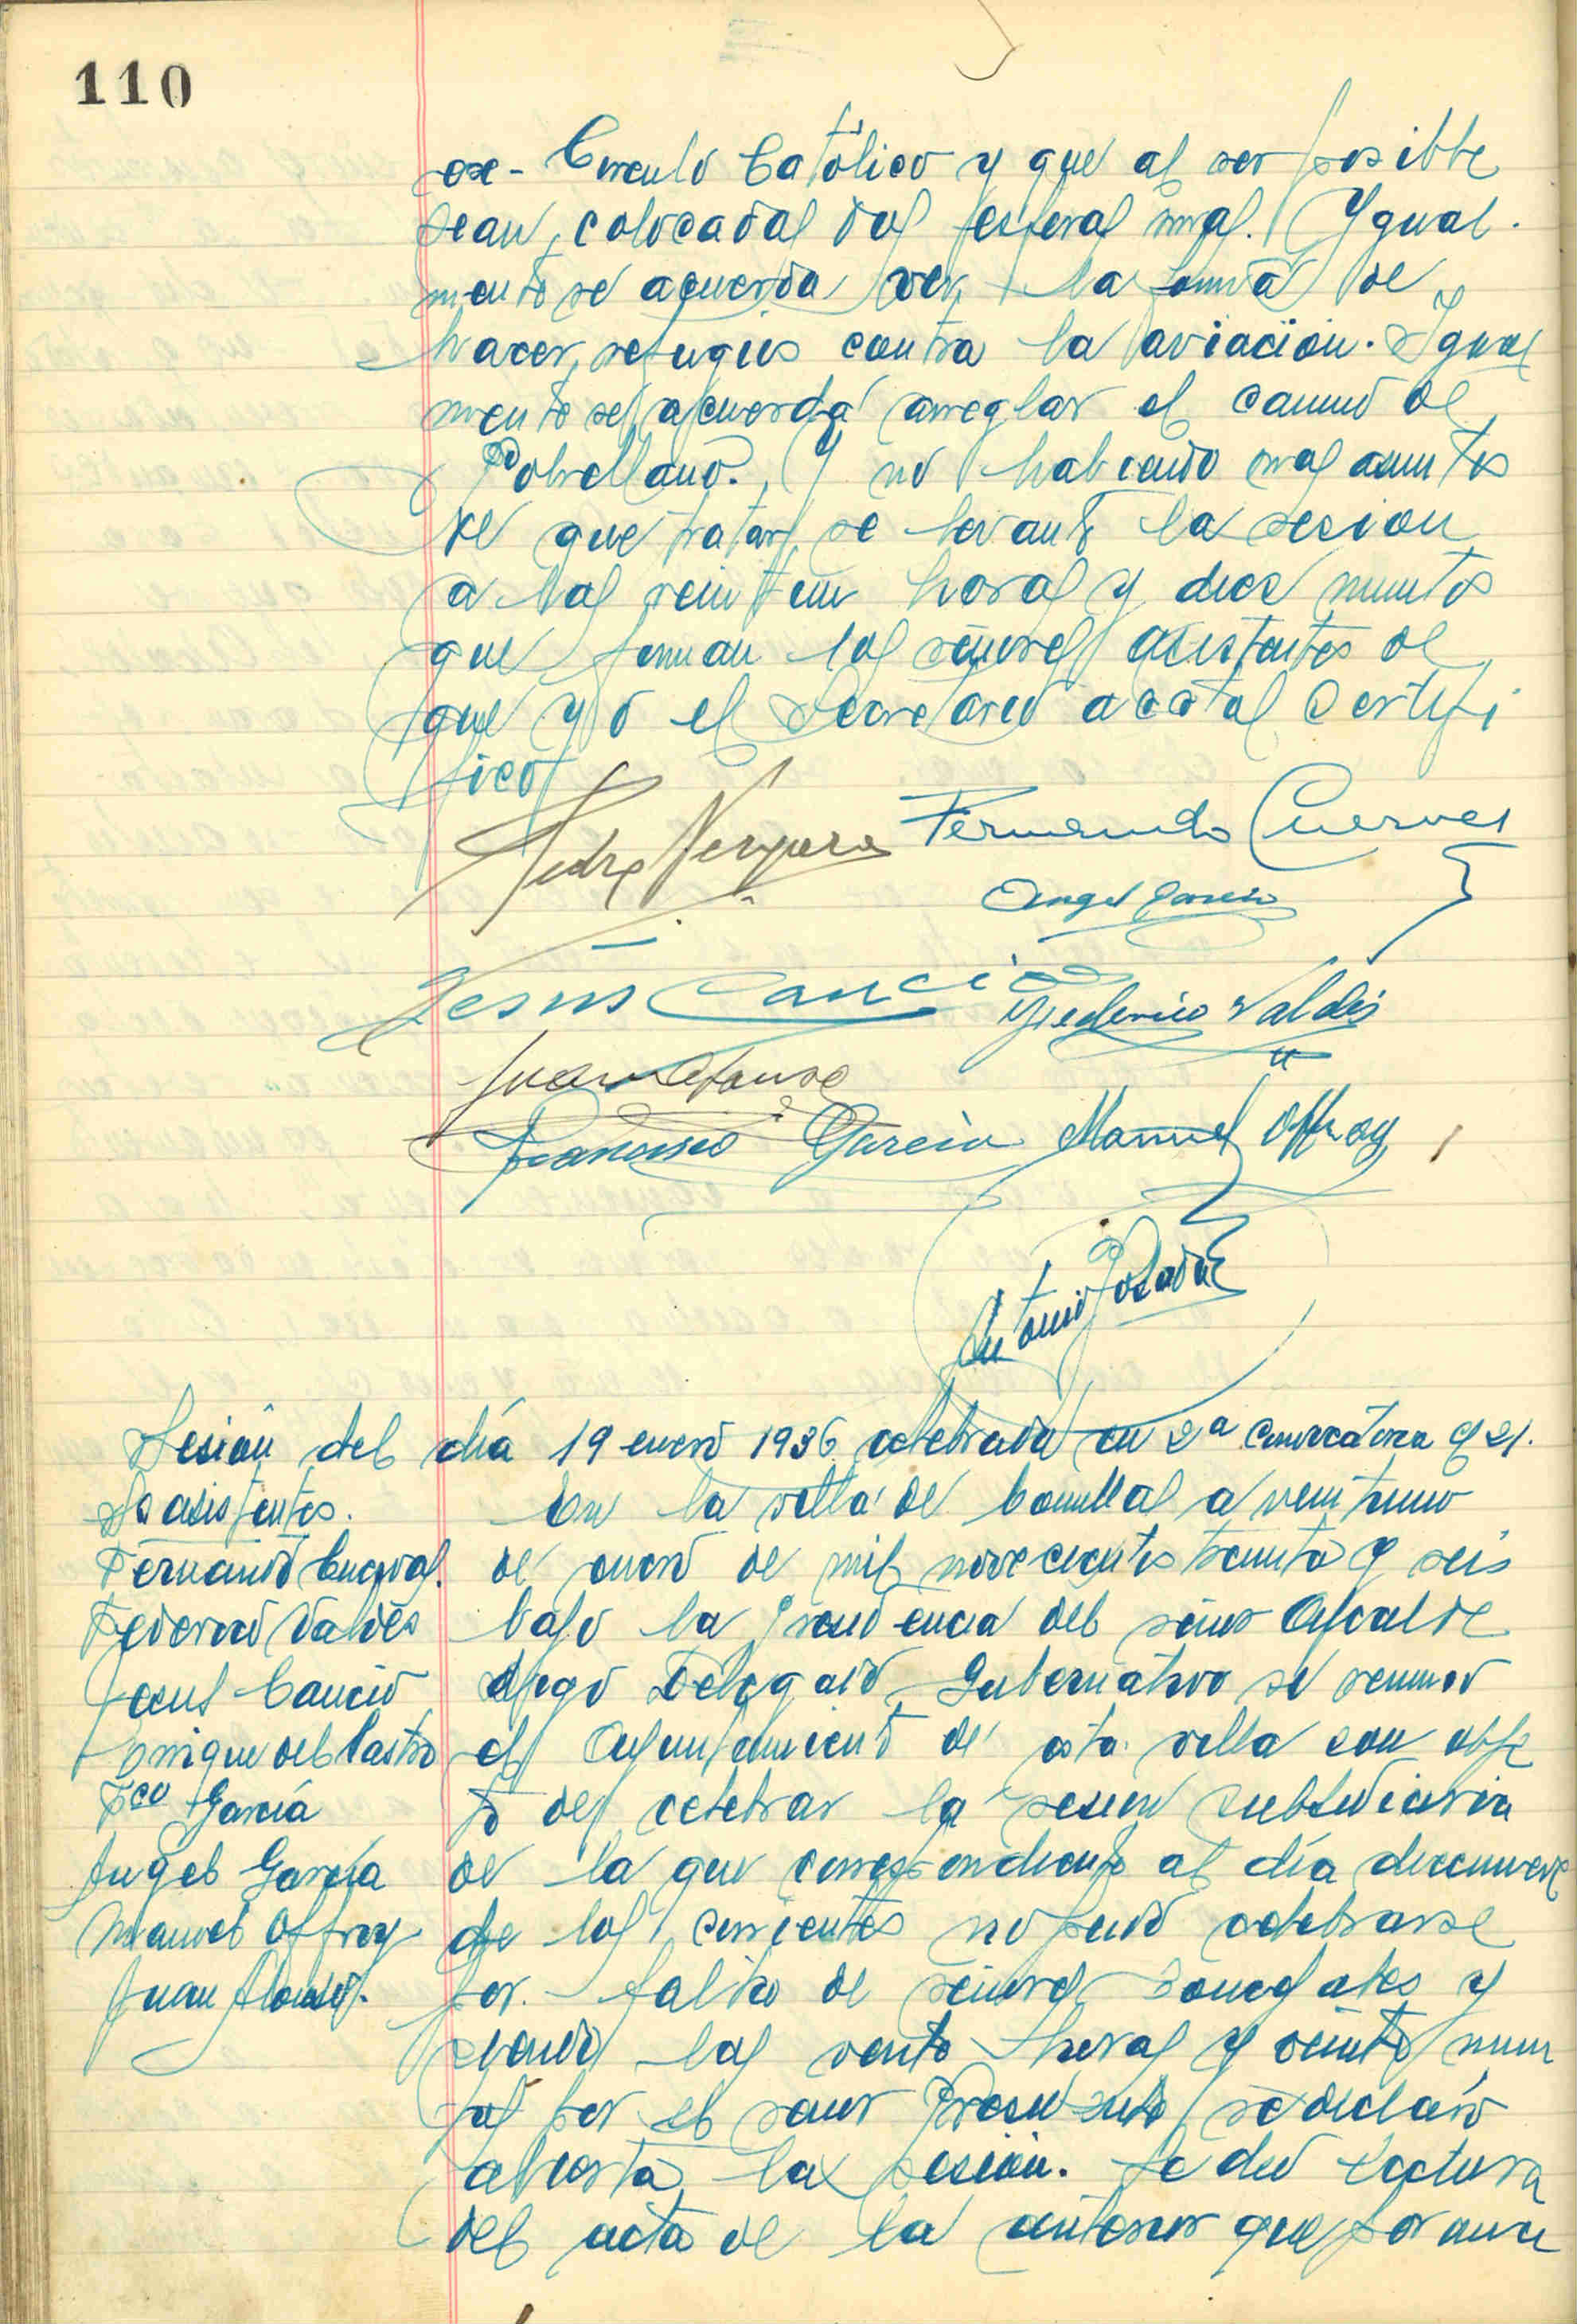 110
ex- Circulo Católico y que al ser posible
sean colocadas dos esferas mas. Ygual-
mente se acuerda ver la forma de
hacer refugios contra la aviación. Igual
mente se acuerda arreglar el camino de
Pobrellano. Y no habiendo mas asuntos
de que tratar se levantó la sesion
a las veintiun horas y diez minutos
que firman los señores asistentes de
que yo el Secretario acctal Certifi
fico
Pedro Vergara Fernando Cuevas
Angel Garcia
Jesús Cancio Federico Valdés
Juan Alonso
Francisco García Manuel Offroy
Antonio Posada
Sesión del día 19 enero 1936 celebrada en 2ª convocatoria el 21.
Sres asistentes.
Fernando Cuevas.
Federico Valdés
Jesus Cancio
Enrique del Castro
Fco García
Angel García
Manuel Offroy
Juan Alonso.
En la villa de Comillas a veintiuno
de enero de mil novecientos treinta y seis
bajo la presidencia del señor Alcalde
digo Delegado Gubernativo se reunió
el Ayuntamiento de esta villa con obje
to de celebrar la sesion subsidiaria
de la que correspondiente al día diecinueve
de los corrientes no pudo celebrarse
por falta de señores Concejales y
siendo las veinte horas y veinte minu
tos por el señor Presidente se declaró
abierta la sesion. Se dió lectura
del acta de la anterior que por unani